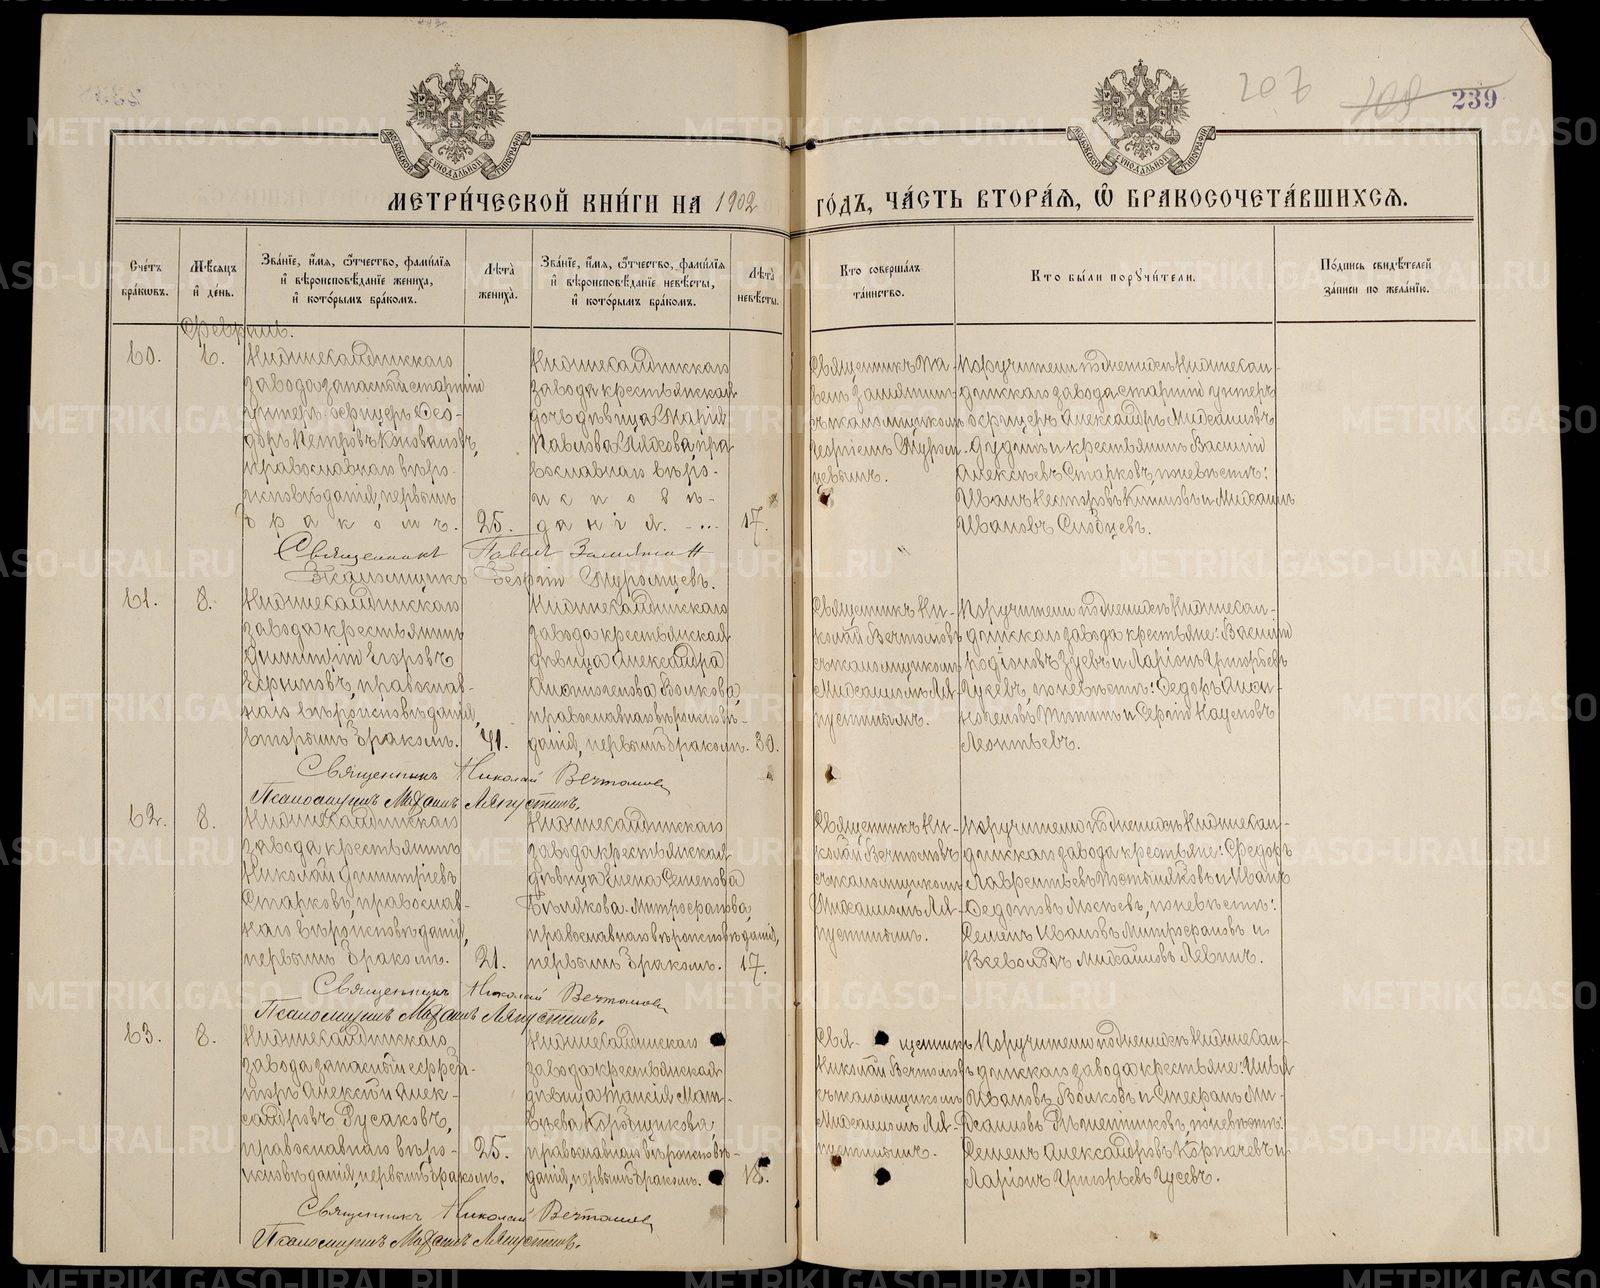 207
239
МОСКОВСКОЙ СУНОДАЛЬНОЙ ТИПОГРАФІИ
МОСКОВСКОЙ СУНОДАЛЬНОЙ ТИПОГРАФІИ
МЕТРИ́ЧЕСКОЙ КНИ́ГИ НА 1902 ГО́ДЪ, ЧА́СТЬ ВТОРА́Ѧ, Ѽ БРАКОСОЧЕТА́ВШИХСѦ.
Счетъ бра́ковъ.
Мѣ́сяцъ и́ де́нь.
Зва́ніе, и́мя, ѿтчество, фами́лія и́ вѣроисповѣ́даніе жениха̀, и́ кото́рымъ бра́комъ.
Лѣта̀ жениха̀.
Зва́ніе, и́мя, ѿтчество, фами́лія и́ вѣроисповѣ́даніе невѣ́сты, и́ кото́рымъ бра́комъ.
Лѣта̀ невѣ́сты.
Кто соверша́лъ та́инство.
Кто бы́ли поручи́тели.
По́дпись свидѣ́телей за́писи по жела́нію.
Февраль.
60.
6.
Нижнесалдинскаго
завода запасный старшій
унтеръ-офицеръ Ѳео-
доръ Петровъ Коноваловъ,
православнаго вѣро-
исповѣданія, первымъ
бракомъ.
25.
Нижнесалдинскаго
завода крестьянская
дочь дѣвица Марія
Павлова, пра-
вославнаго вѣро-
исповѣ-
данія.
17.
Священникъ Па-
велъ Замятинъ
съ псаломщикомъ
Георгіемъ Туром-
цевымъ.
Поручители по женихѣ Нижнесал-
динскаго завода старшій унтеръ
офицеръ Александръ Михаиловъ
Дудинъ и крестьянинъ Василій
Алексѣевъ Старковъ, по невѣстѣ:
Иванъ Несторовъ и Михаилъ
Ивановъ
Священникъ Павелъ Замятинъ
Псаломщикъ Георгій Туромцевъ.
61.
8.
Нижнесалдинскаго
завода крестьянинъ
Димитрій Егоровъ
православ-
наго вѣроисповѣданія,
вторымъ бракомъ.
41.
Нижнесалдинскаго
завода крестьянская
дѣвица Александра
Волкова,
православнаго вѣроисповѣ-
данія, первымъ бракомъ.
30.
Священникъ Ни-
колай Вечтомовъ
съ псаломщикомъ
Михаиломъ Ля-
пустинымъ.
Поручители по женихѣ Нижнесал-
динскаго завода крестьяне: Василій
Родіоновъ Зуевъ и Ларіонъ Григорьевъ
Гусевъ, по невѣстѣ: Ѳедоръ
и Сергій Наумовъ
Леонтьевъ.
Священникъ Николай Вечтомовъ
Псаломщикъ Михаилъ Ляпустинъ.
62.
8.
Нижнесалдинскаго
завода крестьянинъ
Николай Димитріевъ
Старковъ, православ-
наго вѣроисповѣданія,
первымъ бракомъ.
21.
Нижнесалдинскаго
завода крестьянская
дѣвица Елена Семенова
Бѣлякова-Митрофанова,
православнаго вѣроисповѣданія,
первымъ бракомъ.
17.
Священникъ Ни-
колай Вечтомовъ
съ псаломщикомъ
Михаиломъ Ля-
пустинымъ.
Поручители по женихѣ Нижнесал-
динскаго завода крестьяне:
Лаврентьевъ Постыляковъ и Иванъ
Ѳедотовъ Мосѣевъ, по невѣстѣ:
Семенъ Ивановъ Митрофановъ и
Всеволодъ Михаиловъ Левинъ.
Священникъ Николай Вечтомовъ
Псаломщикъ Михаилъ Ляпустинъ.
63.
8.
Нижнесалдинскаго
завода запасный ефрей-
торъ Алексѣй Алек-
сандровъ Русаковъ,
православнаго вѣро-
исповѣданія, первымъ бракомъ.
25.
Нижнесалдинскаго
завода крестьянская
дѣвица Таисія Мат-
вѣева Коробщикова,
православнаго вѣроисповѣ-
данія, первымъ бракомъ.
18.
Свя-щенникъ
Николай Вечтомовъ
съ псаломщикомъ
Михаиломъ Ля-
пустинымъ.
Поручители по женихѣ Нижнесал-
динскаго завода крестьяне:
Ивановъ Волковъ и Стефанъ
Рѣшетниковъ, по невѣстѣ:
Семенъ Александровъ Корпачевъ и
Ларіонъ Григорьевъ Гусевъ.
Священникъ Николай Вечтомовъ
Псаломщикъ Михаилъ Ляпустинъ.
METRIKI.GASO-URAL.RU